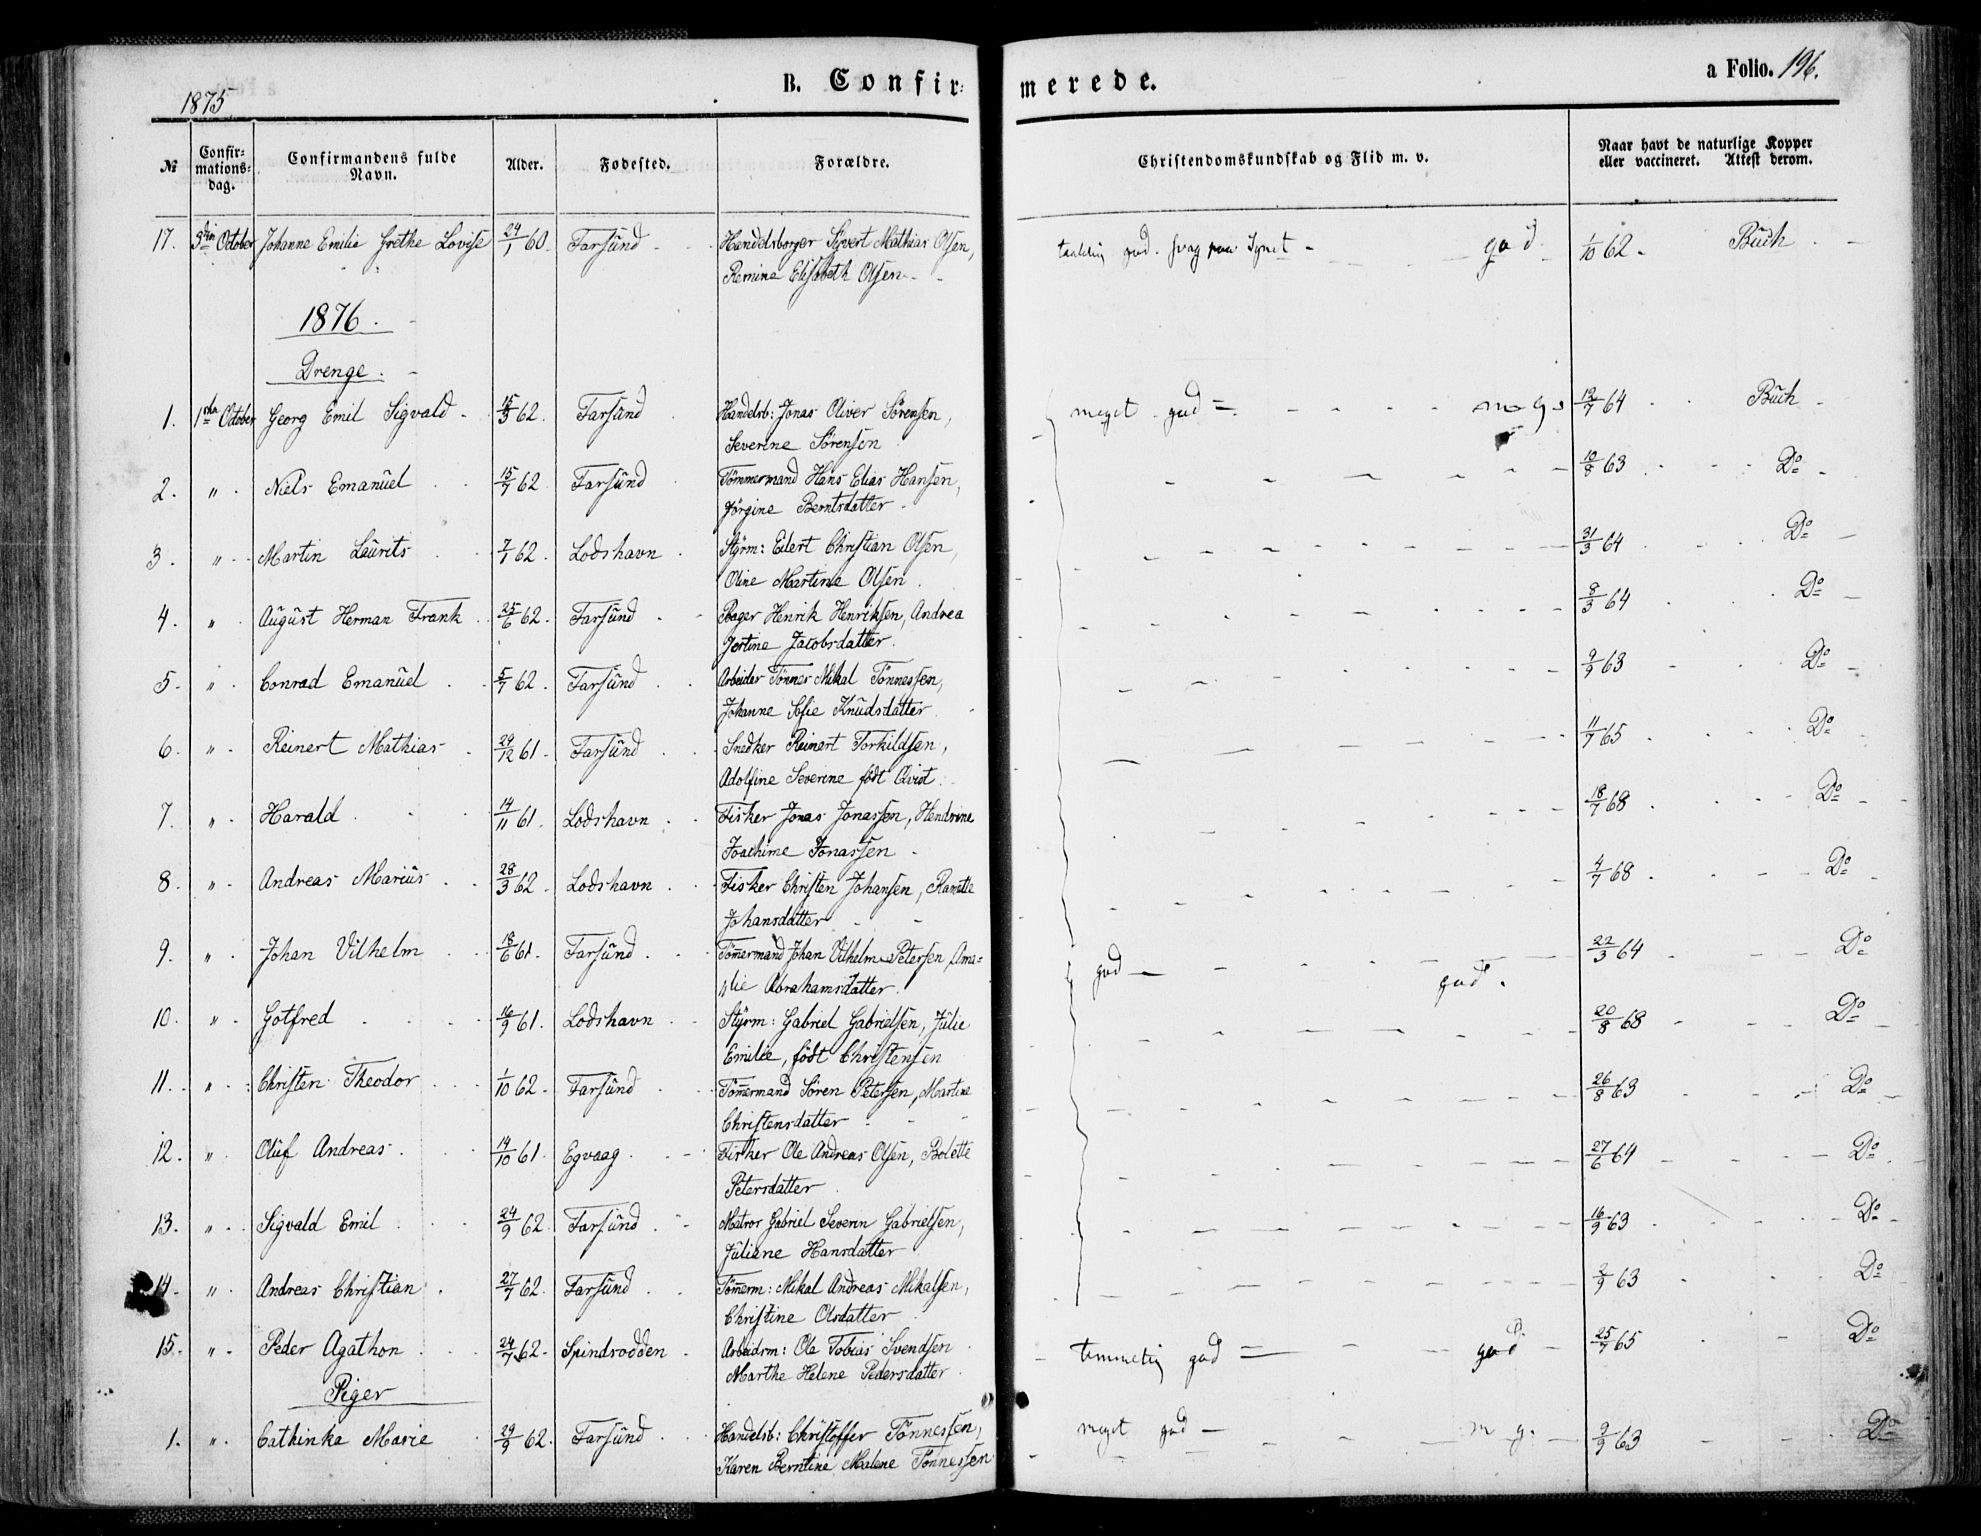 B. Confir- merede. a Folio. 196.
1875
№ Confir-mations-dag. Confirmandens fulde Navn. Alder. Fødested. Forældre. Christendomskundskab og Flid m. v. Naar havt de naturlige Kopper eller vaccineret. Attest derom.
17. October Johanne Emilie Grethe Lovise 24/1 60. Farsund Handelsborger Sivert Mathias Olsen, god. svag paa Synet - god. 1/10 62. Buch
Remine Elisabeth Olsen
1876.
Drenge.
1. 1ste October Georg Emil Sigvald 15/3 62. Farsund Handelsb: Jonas Oliver Sørensen, meget god m. g. 12/7 64 Buch
Severine Sørensen
2. " Niels Emanuel 15/7 62 Farsund Tømmermand Hans Elias Hansen, 10/8 63 Do
Jørgine Berntsdatter
3. " Martin Laurits 7/1 62. Lodshavn Styrm: Edert Christian Olsen, 31/3 64 Do
Oline Martine Olsen
4. " August Herman Frank 25/6 62. Farsund Bager Henrik Henriksen, Andrea 8/3 64 Do
Jostine Jacobsdatter
5. " Conrad Emanuel 5/7 62. Farsund Arbeider Tønnes Mikal Tønnessen, 9/9 63 Do
Johanne Sofie Knudsdatter
6. " Reinert Mathias 29/12 61. Farsund Snedker Reinert Torkildsen, 11/7 65 Do
Adolfine Severine født Qvist
7. " Harald 14/11 61. Lodshavn Fisker Jonas Jonassen, Hendrine 18/7 68 Do
Joachime Jonassen
8. " Andreas Marius 28/3 62. Lodshavn Fisker Christen Johansen, Ramette 4/7 68 Do
Johansdatter
9. " Johan Vilhelm 18/6 61. Farsund Tømmermand Johan Vilhelm Petersen, Ama- god god. 22/3 64 Do
lie Abrahamsdatter
10. " Gotfred 16/9 61. Lodshavn Styrm: Gabriel Gabrielsen, Julie 20/8 68 Do
Emilie, født Christensen
11. " Christen Theodor 1/10 62. Farsund Tømmermand Søren Petersen, Martine 26/8 63 Do
Christensdatter
12. " Oluf Andreas 14/10 61. Egvaag Fisker Ole Andreas Olsen, Bolette 27/6 64 Do
Petersdatter
13. " Sigvald Emil 24/9 62. Farsund Matros Gabriel Severin Gabrielsen, 16/9 63 Do
Juliane Hansdatter
14. " Andreas Christian 27/7 62. Farsund Tømerm: Mikal Andreas Mikalsen, 2/9 63 Do
Christine Olsdatter
15. " Peder Agathon 24/7 62. Spindsodden Arbeidsm: Ole Tobias Svendsen temmelig god god 25/7 65 Do
Marthe Helene Pedersdatter
Piger
1. " Cathinka Marie 29/9 62. Farsund Handelsb: Christoffer Tönnessen, meget god m. g. 9/9 63 Do
Karen Berntine Malene Tønnessen